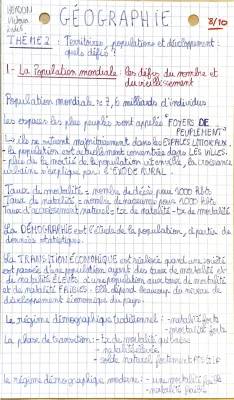 GÉOGRAPHIE
8/10
THÈME 2 : Territoires, populations et développement :
quels défis ?
1 - La Population mondiale : les défis du nombre et
du vieillissement
Population mondiale : 7,6 milliards d'individus
les espaces les plus peuplés sont appelés "FOYERS DE
PEUPLEMENT"
ils se situent majoritairement dans les ESPACES LITTORAUX
- la population est actuellement concentrée dans LES VILLES.
- plus de la moitié de la population vit en ville, la croissance
urbaine s'explique par l'EXODE RURAL.
Taux de mortalité = nombre de décès pour 1000 hbts
Taux de natalité = nombre de naissances pour 1000 hbts
Taux d'accroissement naturel = tx de natalité - tx de mortalité
La DÉMOGRAPHIE est l'étude de la population, à partir de
données statistiques.
La TRANSITION ÉCONOMIQUE est réalisée quand une société
est passée d'une population ayant des taux de mortalité et
de natalité ÉLEVÉS à une population aux taux de mortalité
et de natalité FAIBLES. Elle dépend beaucoup du niveau de
développement économique du pays.
Le régime démographique traditionnel : - natalité forte
- mortalité forte
La phase de transition : - tx de mortalité qui baisse
- natalité élevée
- solde naturel fortement POSITIF
Le régime démographique moderne : - une mortalité faible
- natalité faible